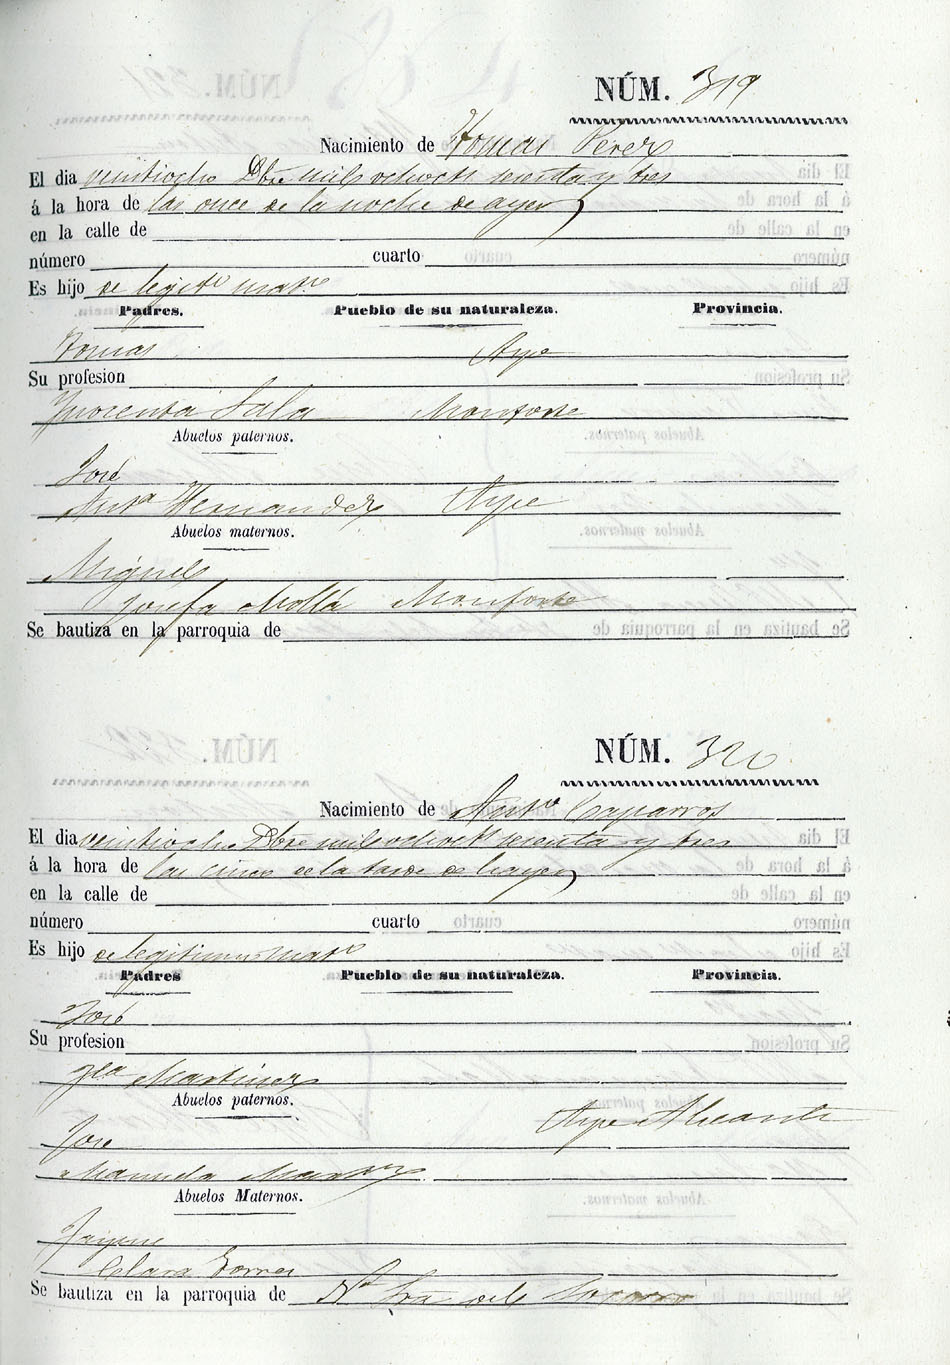 NÚM. 319
Nacimiento de Tomas Perez
El dia veintiocho Dbre mil ochocts sesenta y tres
á la hora de las once de la noche de ayer
en la calle de
número cuarto
Es hijo de legitº matº
Padres. Pueblo de su naturaleza. Provincia.
Tomas Aspe
Su profesion
Ynocenta Sala Monforte
Abuelos paternos.
José
Antª Hernandez Aspe
Abuelos maternos.
Miguel
Josefa Mollá Monforte
Se bautiza en la parroquia de
NÚM. 320
Nacimiento de Antº Caparros
El dia veintiocho Dbre mil ochocts sesenta y tres
á la hora de las cinco de la tarde de hayer
en la calle de
número cuarto
Es hijo de legitimo matº
Padres Pueblo de su naturaleza. Provincia.
José
Su profesion
Martinez
Abuelos paternos.
Aspe Alicante
José
Manuela
Abuelos Maternos.
Jayme
Clara Torres
Se bautiza en la parroquia de Nª Sra del Socorro